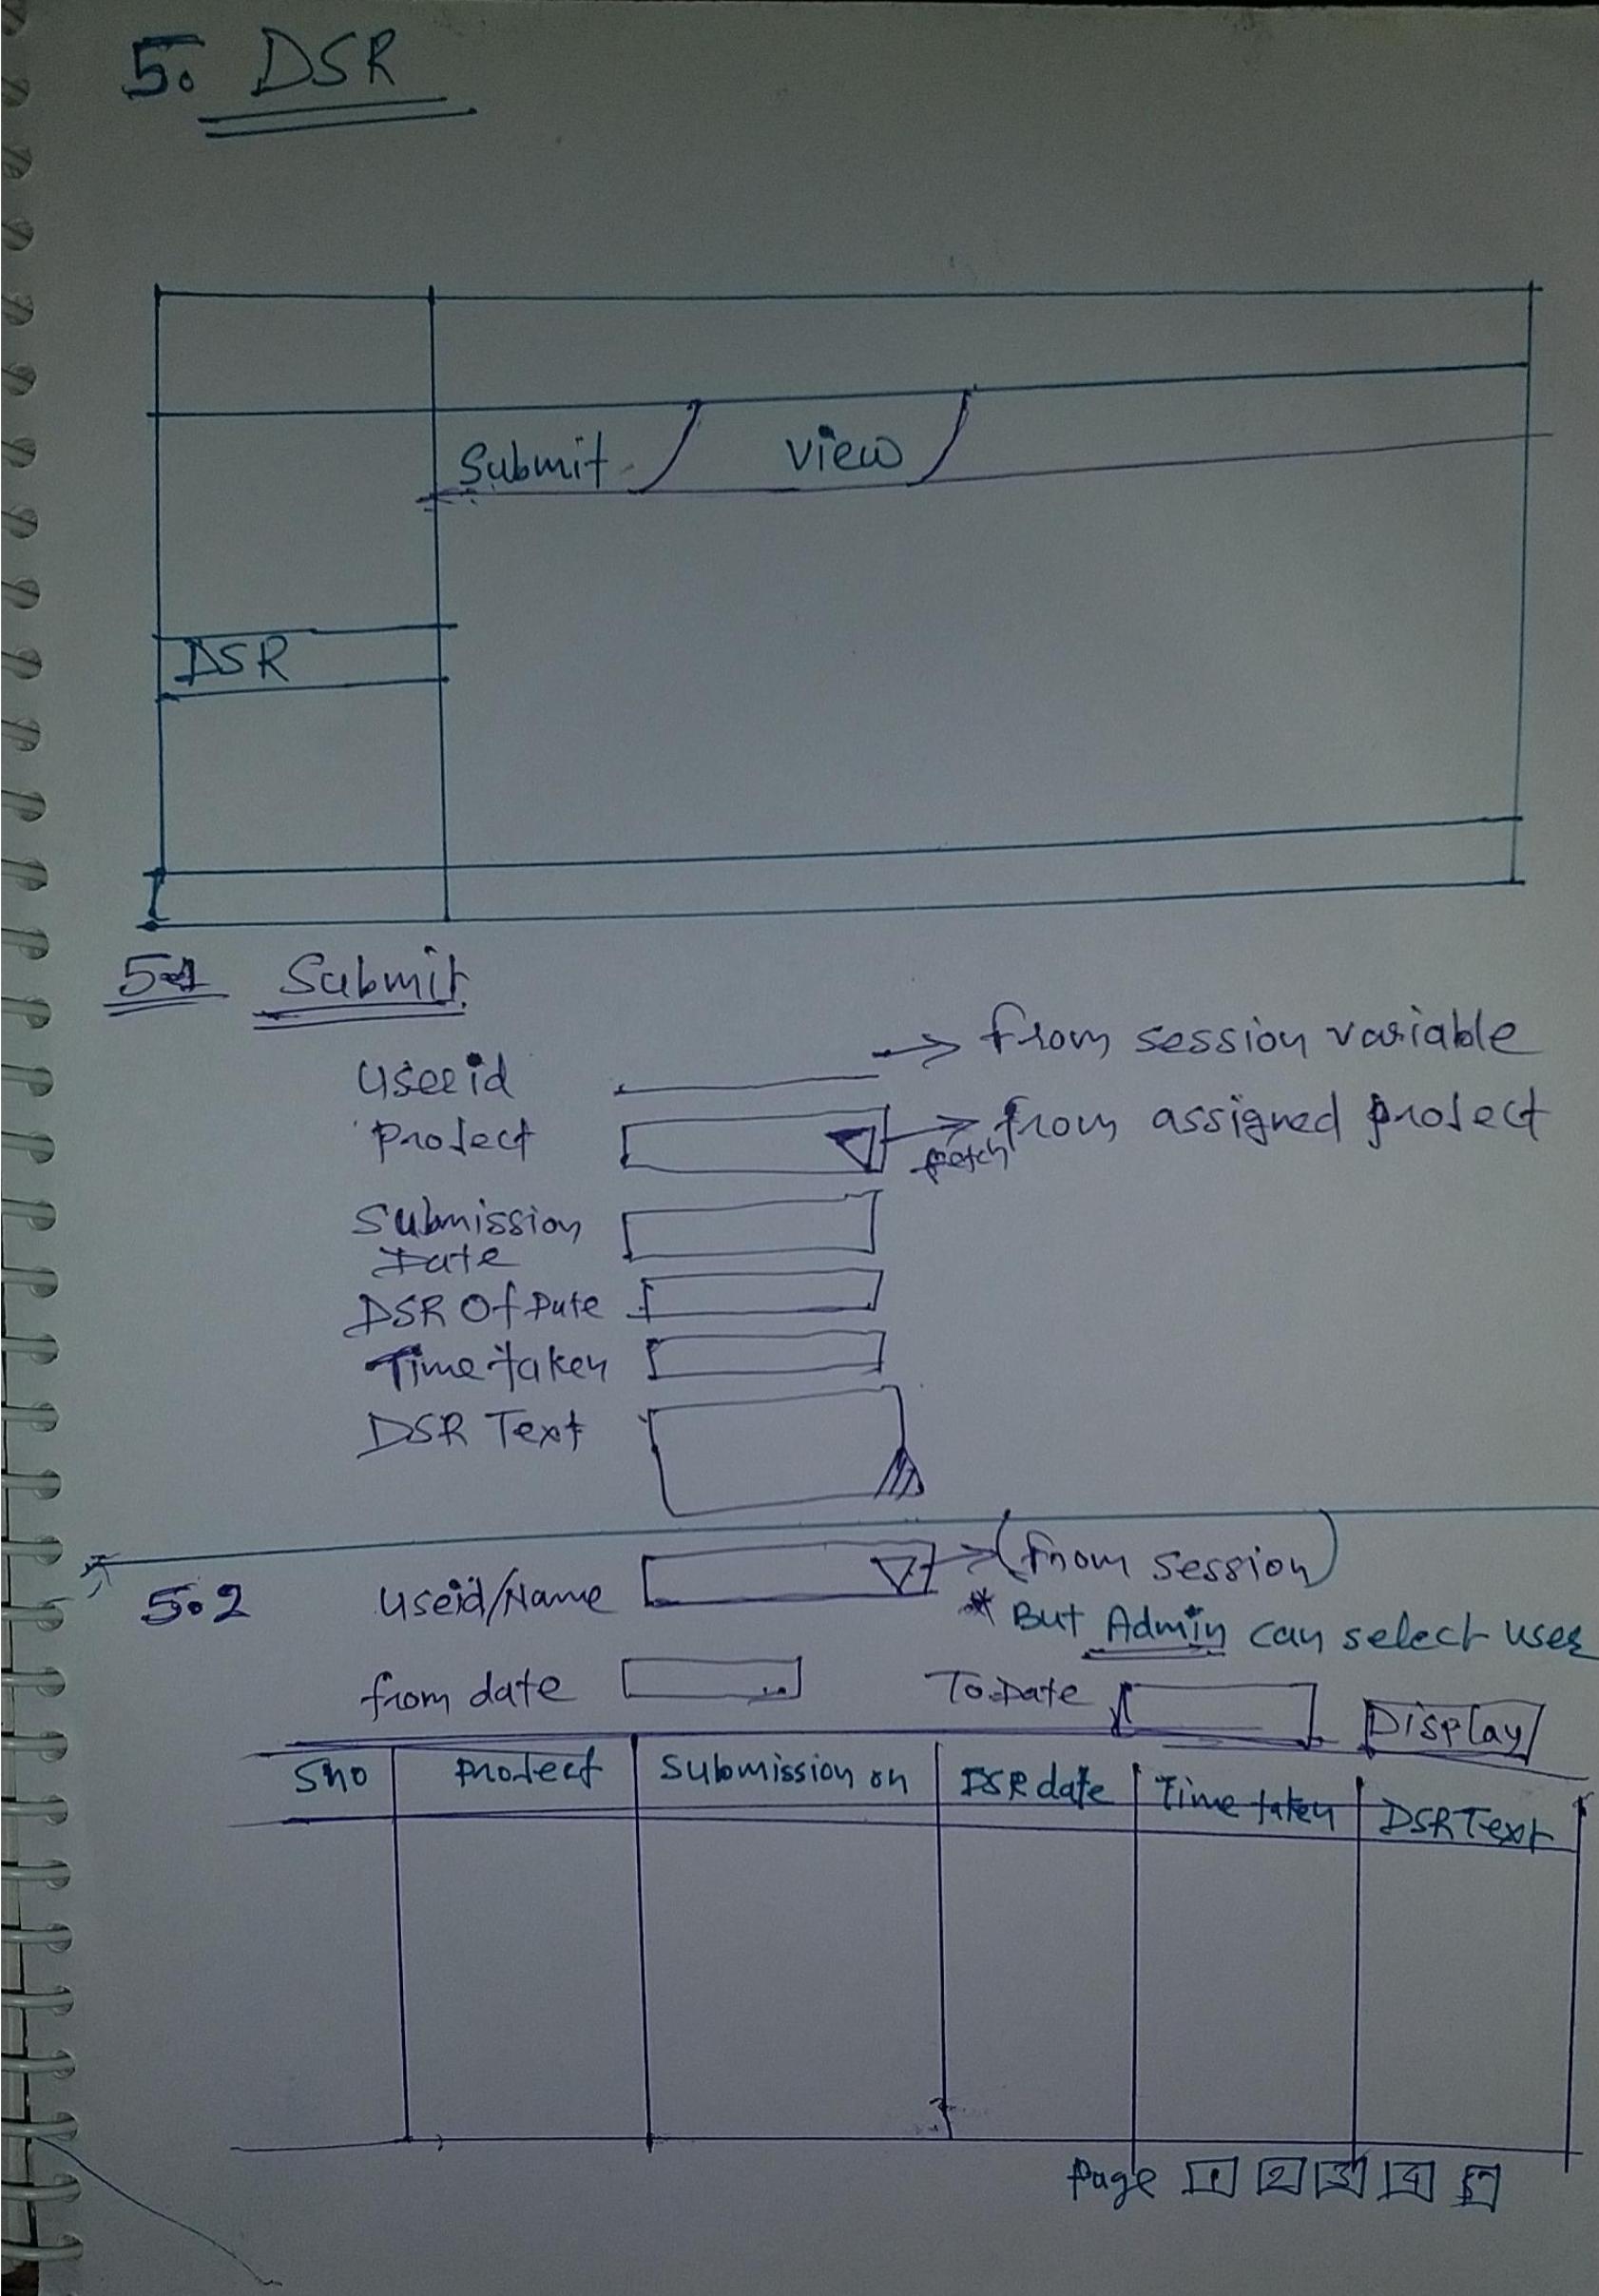 5. DSR
Submit View
DSR
5.1 Submit
Userid → from session variable
Project → fetch from assigned project
Submission
Date
DSR Of Date
Time taken
DSR Text
5.2 Useid/Name → (from session)
* But Admin can select user
from date To Date Display
Sno Project Submission on DSR date Time taken DSR Text
Page 1 2 3 4 5